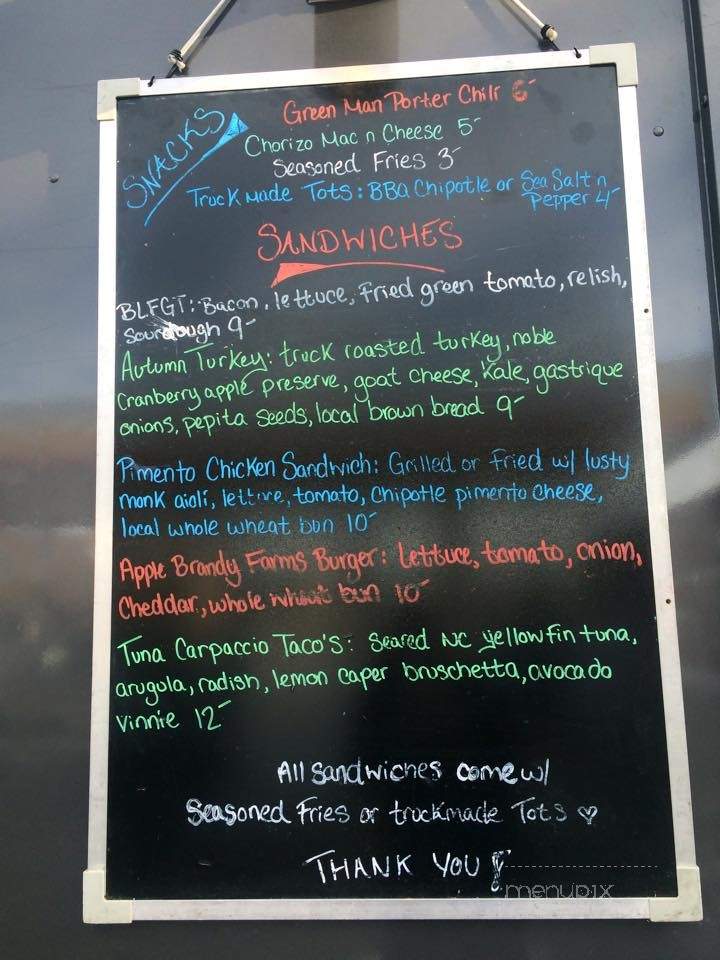 SNACKS
Green Man Porter Chili 6-
Chorizo Mac n Cheese 5-
Seasoned Fries 3-
Truck Made Tots: BBQ Chipotle or Sea Salt n
Pepper 4-
SANDWICHES
BLFGT: Bacon, lettuce, Fried green tomato, relish,
Sourdough 9-
Autumn Turkey: truck roasted turkey, noble
Cranberry apple preserve, goat cheese, Kale, gastrique
onions, pepita seeds, local brown bread 9-
Pimento Chicken Sandwich: Grilled or Fried w/ lusty
monk aioli, lettuce, tomato, Chipotle pimento cheese,
local whole wheat bun 10-
Apple Brandy Farms Burger: Lettuce, tomato, onion,
Cheddar, whole wheat bun 10-
Tuna Carpaccio Taco's: Seared NC yellowfin tuna,
arugula, radish, lemon caper bruschetta, avocado
vinnie 12-
All sandwiches come w/
Seasoned Fries or truckmade Tots ♡
THANK YOU!
menupix